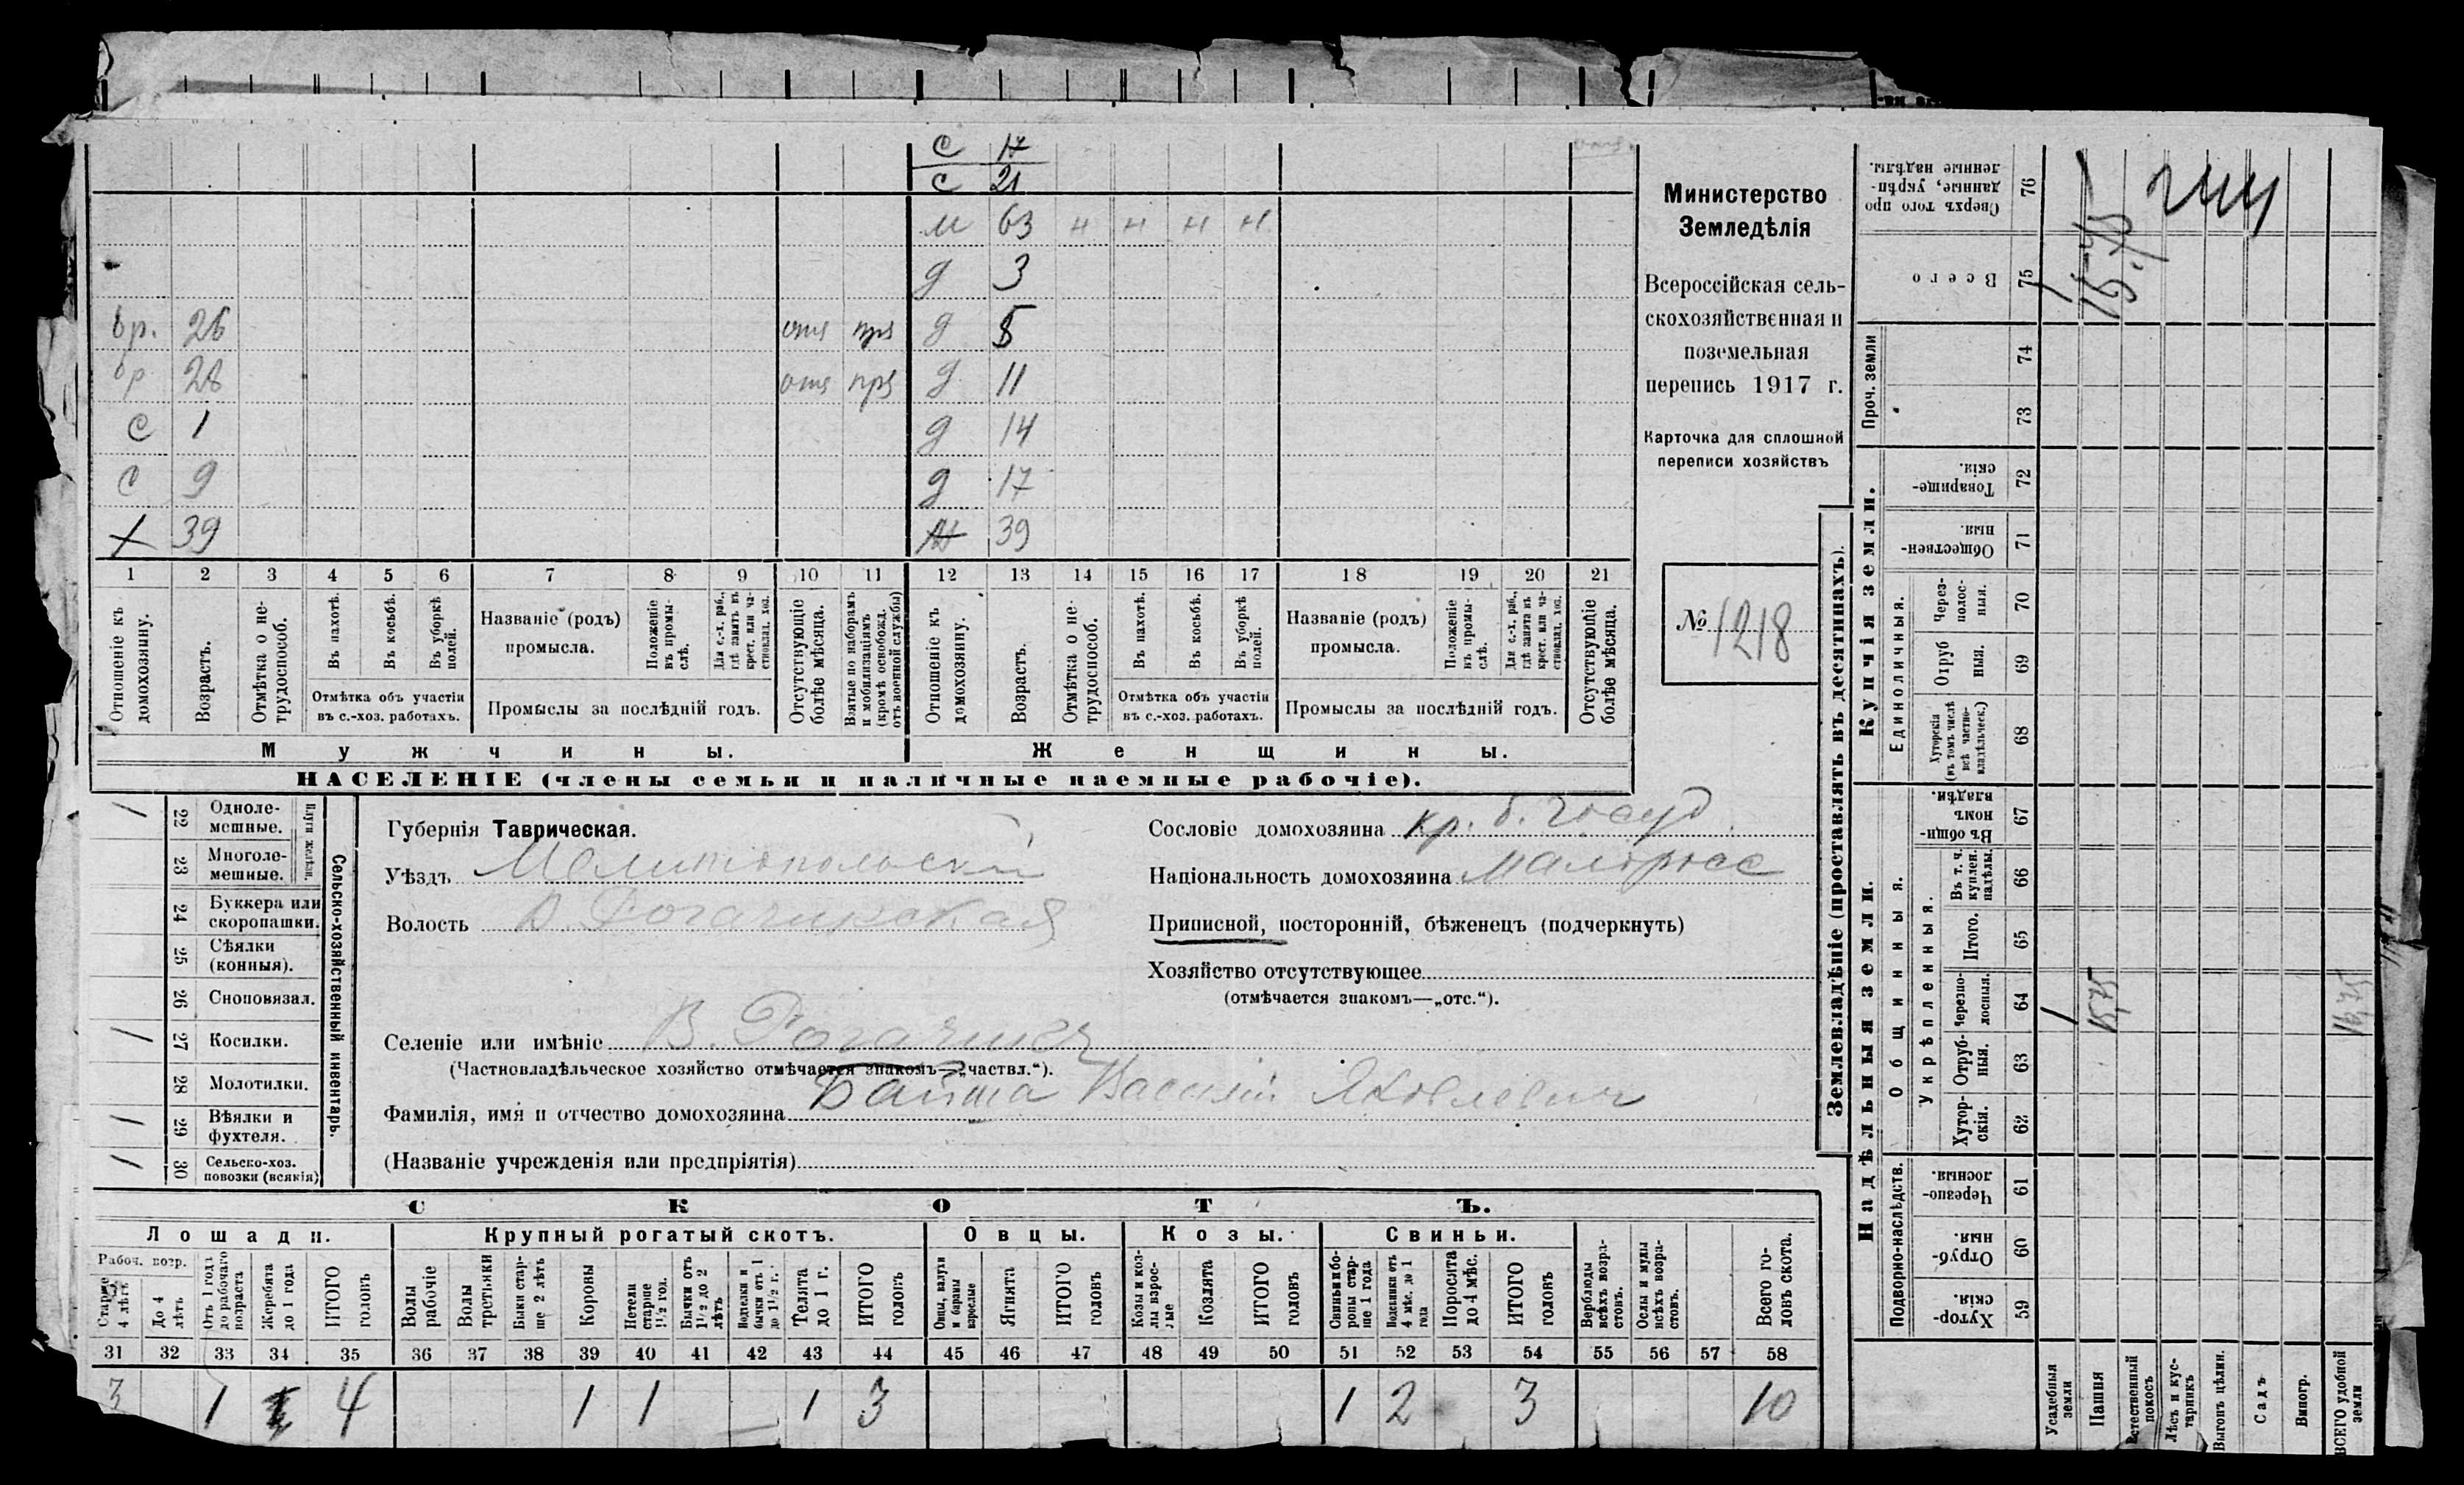 С 17
С 21
м 63 н н н н
д 3
бр. 26 отс прз д 5
бр 28 отс прз д 11
С 1 д 14
С 9 д 17
Х 39 39
1 2 3 4 5 6 7 8 9 10 11 12 13 14 15 16 17 18 19 20 21
Отношеніе къ домохозяину.
Возрастъ.
Отмѣтка о нетрудоспособ.
Въ пахотѣ.
Въ косьбѣ.
Въ уборкѣ полей.
Отмѣтка объ участіи
въ с.-хоз. работахъ.
Названіе (родъ)
промысла.
Положеніе въ промыслѣ.
Для с.-х. раб., гдѣ занятъ въ крест. или частновлад. хоз.
Промыслы за послѣдній годъ.
Отсутствующіе болѣе мѣсяца.
Взятые по наборамъ и мобилизаціямъ (кромѣ освобожд. отъ военной службы)
Отношеніе къ домохозяину.
Возрастъ.
Отмѣтка о нетрудоспособ.
Въ пахотѣ.
Въ косьбѣ.
Въ уборкѣ полей.
Отмѣтка объ участіи
въ с.-хоз. работахъ.
Названіе (родъ)
промысла.
Положеніе въ промыслѣ.
Для с.-х. раб., гдѣ занята въ крест. или частновлад. хоз.
Промыслы за послѣдній годъ.
Отсутствующіе болѣе мѣсяца.
Мужчины. Женщины.
НАСЕЛЕНІЕ (члены семьи и наличные наемные рабочіе).
Министерство
Земледѣлія
Всероссійская сель-
скохозяйственная и
поземельная
перепись 1917 г.
Карточка для сплошной
переписи хозяйствъ
№ 1218
Сельско-хозяйственный инвентарь.
Плуги желѣзн.
/ 22 Одноле-
мешные.
23 Многоле-
мешные.
24 Буккера или
скоропашки.
25 Сѣялки
(конныя).
26 Сноповязал.
/ 27 Косилки.
28 Молотилки.
/ 29 Вѣялки и
фухтеля.
/ 30 Сельско-хоз.
повозки (всякія)
Губернія Таврическая.
Уѣздъ Мелитопольскій
Волость В. Рогачикская
Селеніе или имѣніе В. Рогачик
(Частновладѣльческое хозяйство отмѣчается знакомъ—„частвл.“).
Фамилія, имя и отчество домохозяина Байша Василій Яковлевич
(Названіе учрежденія или предпріятія)
Сословіе домохозяина кр. б. госуд.
Національность домохозяина малоросс
Приписной, посторонній, бѣженецъ (подчеркнуть)
Хозяйство отсутствующее
(отмѣчается знакомъ—„отс.“).
СКОТЪ.
Лошади. Крупный рогатый скотъ. Овцы. Козы. Свиньи.
Рабоч. возр.
Старше 4 лѣтъ
До 4 лѣтъ
Отъ 1 года до рабочаго возраста
Жеребята до 1 года
ИТОГО головъ
Волы рабочіе
Волы третьяки
Быки старше 2 лѣтъ
Коровы
Нетели старше 1½ год.
Бычки отъ 1½ до 2 лѣтъ
Подтелки и бычки отъ 1 до 1½ г.
Телята до 1 г.
ИТОГО головъ
Овцы, валухи и бараны взрослые
Ягнята
ИТОГО головъ
Козы и козлы взрослые
Козлята
ИТОГО головъ
Свиньи и боровы старше 1 года
Подсвинки отъ 4 мѣс. до 1 года
Поросята до 4 мѣс.
ИТОГО головъ
Верблюды всѣхъ возрастовъ.
Ослы и мулы всѣхъ возрастовъ.
Всего головъ скота.
31 32 33 34 35 36 37 38 39 40 41 42 43 44 45 46 47 48 49 50 51 52 53 54 55 56 57 58
3 1 4 1 1 1 3 1 2 3 10
Землевладѣніе (проставлять въ десятинахъ).
Надѣльныя земли. Купчія земли. Проч. земли
Подворно-наслѣдств. Общинныя. Единоличныя.
Укрѣпленныя.
Хуторскія. 59
Отрубныя. 60
Черезполосныя. 61
Хуторскія. 62
Отрубныя. 63
Черезполосныя. 64
Итого. 65
Въ т. ч. куплен. надѣлы. 66
Въ общинномъ владѣн. 67
Хуторскія (въ томъ числѣ всѣ частновладѣльческ.) 68
Отрубныя. 69
Черезполосныя. 70
Общественныя. 71
Товарищескія. 72
73
74
Всего 75
Сверхъ того проданные, укрѣпленные надѣлы. 76
Усадебныя земли 1
Пашня 15,75
Естественный покосъ
Лѣсъ и кустарникъ
Выгонъ цѣлин.
Садъ
Виногр.
ВСЕГО удобной земли 16,75